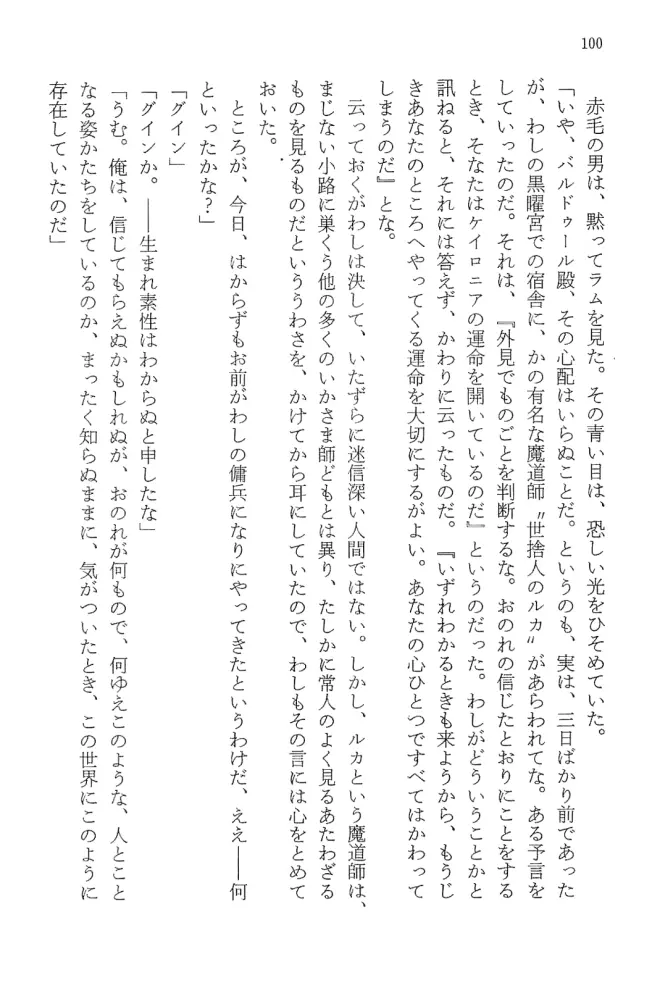 100
赤毛の男は、黙ってラムを見た。その青い目は、恐しい光をひそめていた。
「いや、バルドゥール殿、その心配はいらぬことだ。というのも、実は、三日ばかり前であった
が、わしの黒曜宮での宿舎に、かの有名な魔道師〝世捨人のルカ〟があらわれてな。ある予言を
していったのだ。それは、『外見でものごとを判断するな。おのれの信じたとおりにことをする
とき、そなたはケイロニアの運命を開いているのだ』というのだった。わしがどういうことかと
訊ねると、それには答えず、かわりに云ったものだ。『いずれわかるときも来ようから、もうじ
きあなたのところへやってくる運命を大切にするがよい。あなたの心ひとつですべてはかわって
しまうのだ』とな。
云っておくがわしは決して、いたずらに迷信深い人間ではない。しかし、ルカという魔道師は、
まじない小路に巣くう他の多くのいかさま師どもとは異り、たしかに常人のよく見るあたわざる
ものを見るものだといううわさを、かけてから耳にしていたので、わしもその言には心をとめて
おいた。
ところが、今日、はからずもお前がわしの傭兵になりにやってきたというわけだ、ええ――何
といったかな？」
「グイン」
「グインか。――生まれ素性はわからぬと申したな」
「うむ。俺は、信じてもらえぬかもしれぬが、おのれが何もので、何ゆえこのような、人とこと
なる姿かたちをしているのか、まったく知らぬままに、気がついたとき、この世界にこのように
存在していたのだ」